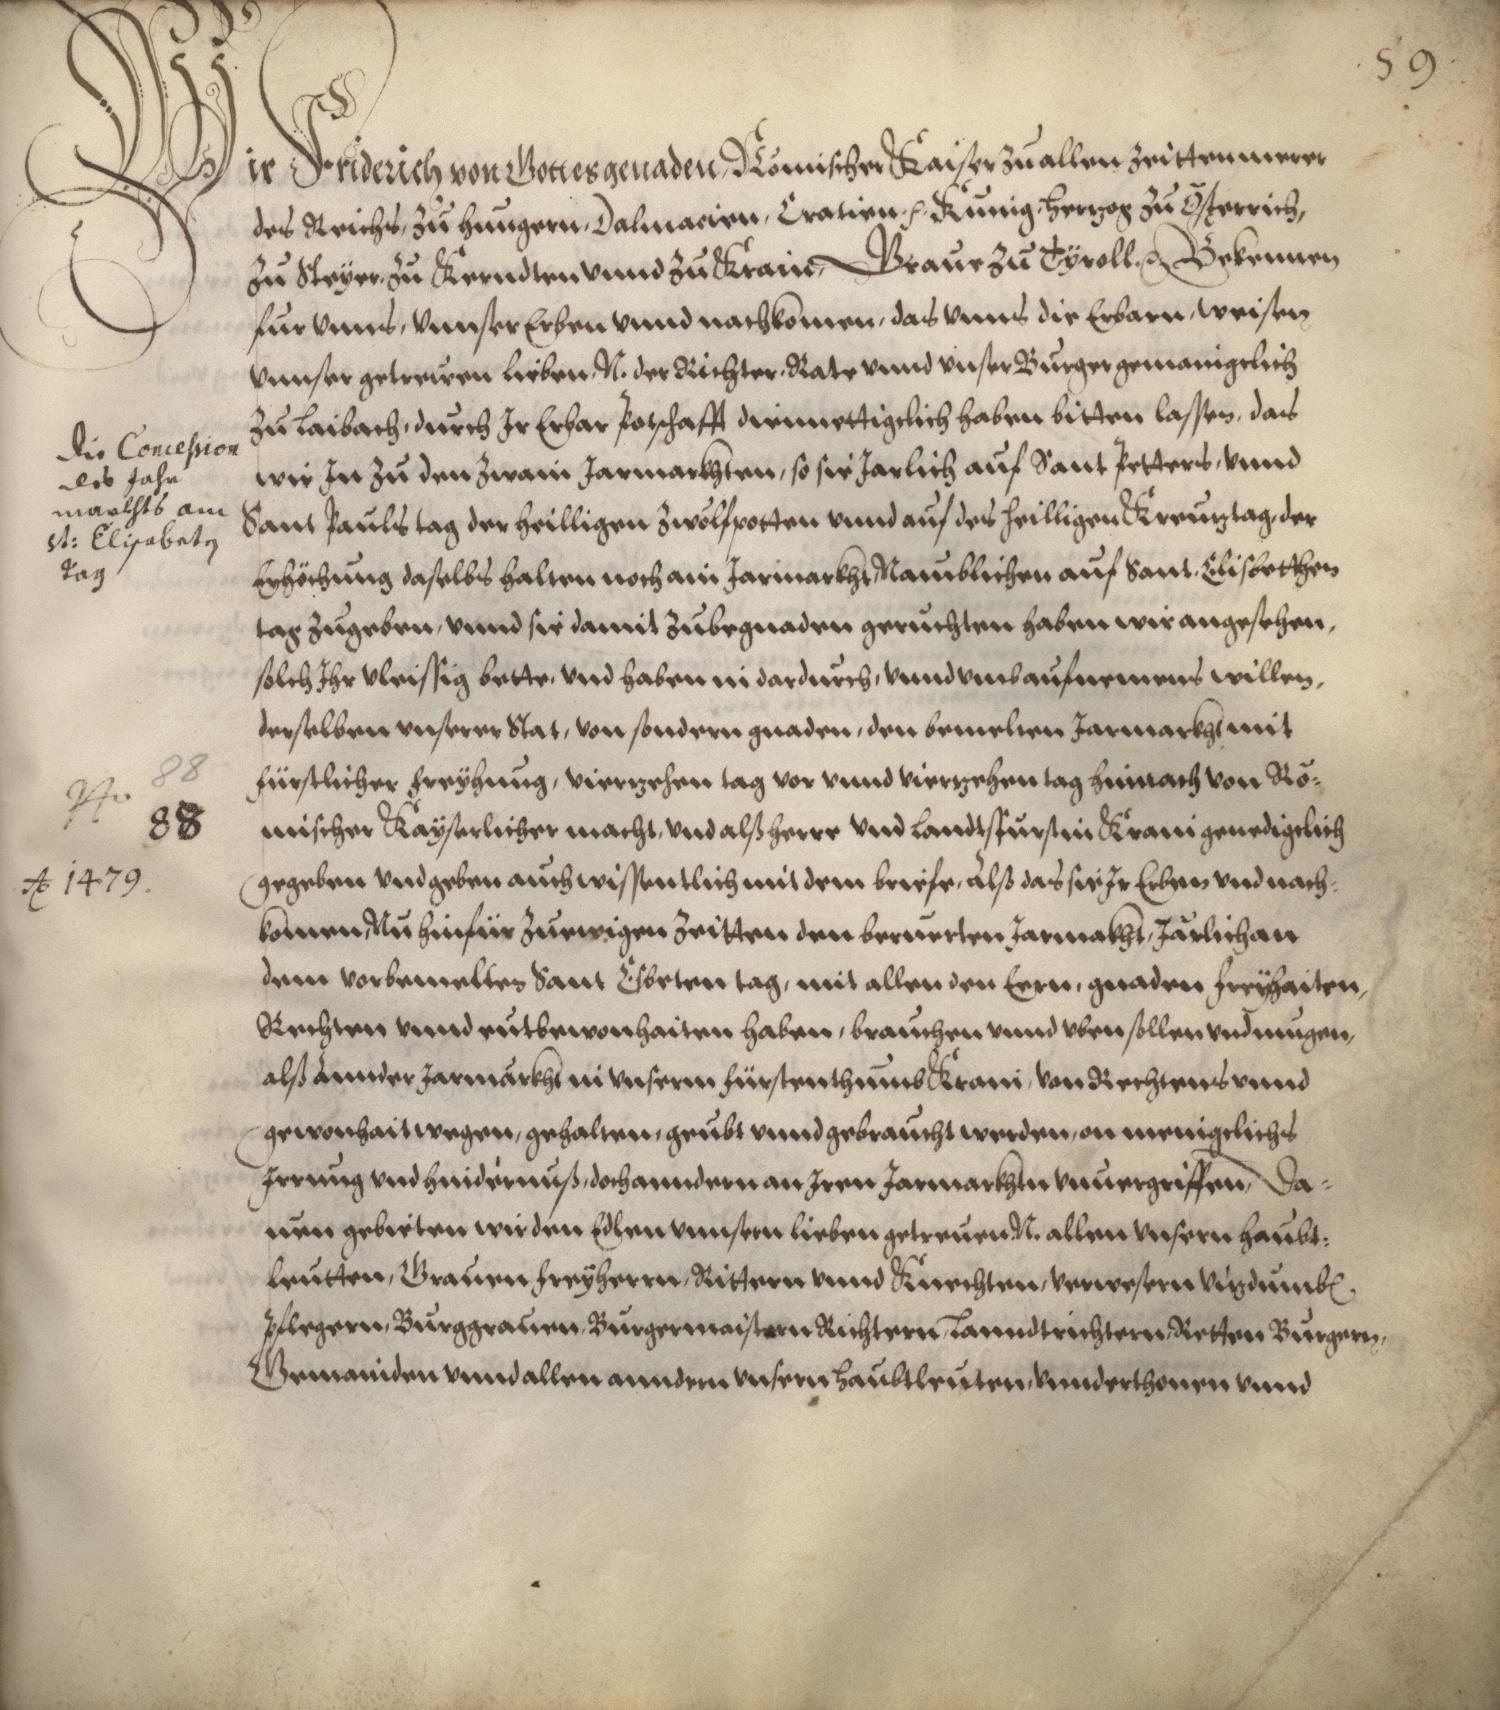 59
Wir Friderich von Gottes genaden, Römischer Kaiser zu allen Zeitten merer
des Reichs, zu Hungern, Dalmacien, Croatien &c. Künig, Herzog zu Österrich,
zu Steyer, zu Kerndten vnnd zu Krain, Graue zu Tyroll &c. Bekennen
fur vnns, vnnser Erben vnnd nachkomen, das vnns die Erbarn, weisen
vnnser getrewen lieben, N. der Richter, Rate vnnd vnser Burger gemainigclich
zu Laibach, durch Ir Erbar Potschafft diemuettigclich haben bitten lassen, das
wir In zu den zwain Jarmarkhten, so sie Jarlich auf Sant Petters, vnnd
Sant Pauls tag der heilligen zwölfpotten vnnd auf des heilligen Kreuztag, der
Erhöchung daselbs halten noch ain Jarmarkht, Namblichen auf Sant Elisbetthen
tag zugeben, vnnd sie damit zubegnaden geruchten haben wir angesehen,
solch Ihr vleissig bette, vnd haben in dardurch, vnnd vmb aufnemens willen,
derselben vnserer Stat, von sondern gnaden, den bemelten Jarmarkht mit
fürstlicher freyhung, vierzehen tag vor vnnd vierzehen tag hinnach von Rö-
mischer Kayserlicher macht, vnd alß herre vnd Landtsfurst in Krain genedigclich
gegeben vnd geben auch wissentlich mit dem briefe, alß das sie Ir Erben vnd nach-
komen, Nu hinfür zu ewigen Zeitten den beruerten Jarmakht, Jarlich an
dem vorbemelten Sant Esbeten tag, mit allen den Eern, gnaden freyhaiten,
Rechten vnnd gewonhaiten haben, brauchen vnnd vben sollen vnd mugen,
alß annder Jarmarkht in vnserm fürstenthumb Krain, von Rechtens vnnd
gewonhait wegen, gehalten, geubt vnnd gebraucht werden, on menigclichs
Irrung vnd hindernuß, doch anndern an Iren Jarmarkhtn vnuergriffen, Da-
uon gebieten wir den Edlen vnnsern lieben getreuen N. allen vnsern haubt-
leutten, Grauen freyherrn, Rittern vnnd Knechten, verwesern vizdumben
Pflegern, Burggrauen, Burgermaistern Richtern, Lanndtrichtern, Retten Burgern,
Gemainden vnnd allen anndern vnsern haubtleuten, vnnderthonen vnnd
Die Concession
des Jahr
markhts am
St: Elisabeth
Tag
No 88
88
Ao 1479.